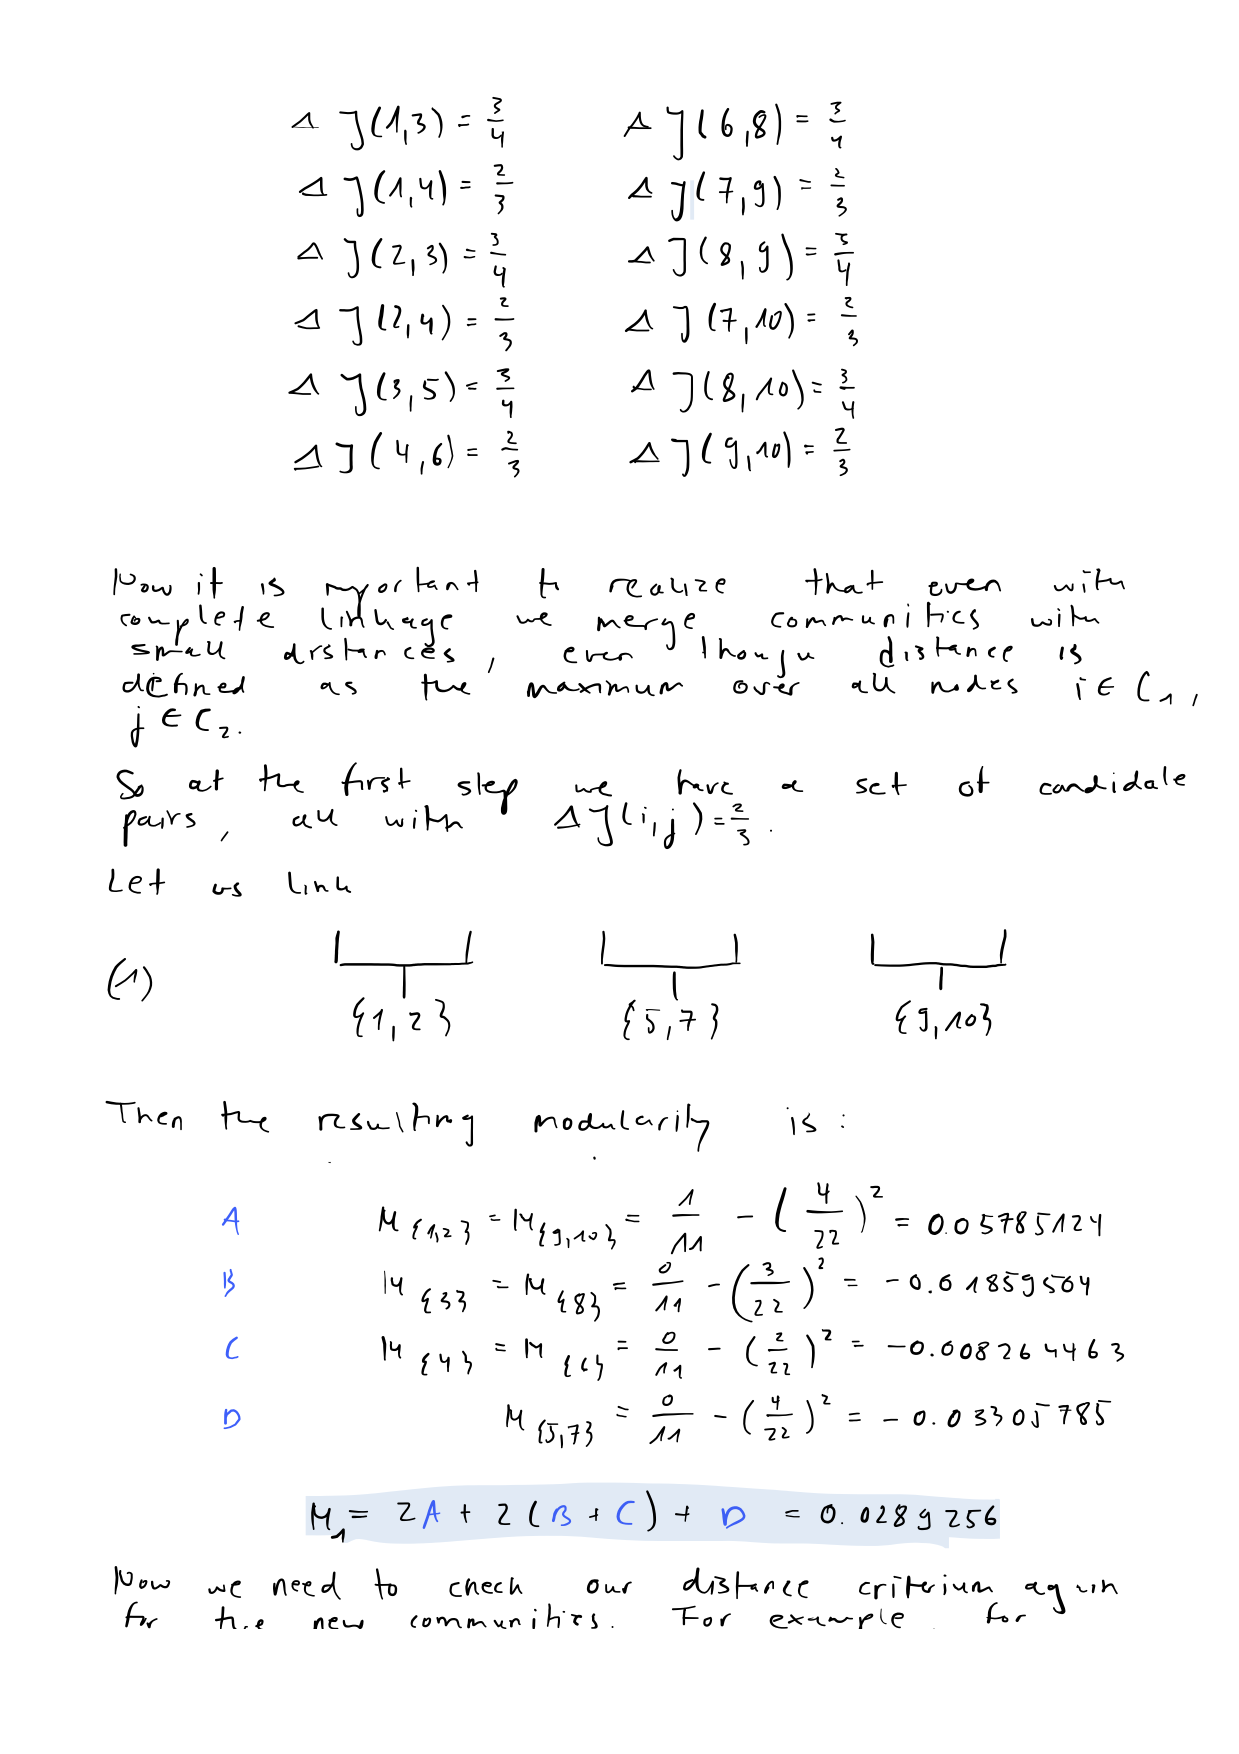 Δ J(1,3) = 3/4
Δ J(1,4) = 2/3
Δ J(2,3) = 3/4
Δ J(2,4) = 2/3
Δ J(3,5) = 3/4
Δ J(4,6) = 2/3
Δ J(6,8) = 3/4
Δ J(7,9) = 2/3
Δ J(8,9) = 3/4
Δ J(7,10) = 2/3
Δ J(8,10) = 3/4
Δ J(9,10) = 2/3
Now it is important to realize that even with
complete linkage we merge communities with
small distances, even though distance is
defined as the maximum over all nodes i ∈ C₁,
j ∈ C₂.
So at the first step we have a set of candidate
pairs, all with Δ J(i,j) = 2/3.
Let us link
(1) {1,2} {5,7} {9,10}
Then the resulting modularity is:
A M_{1,2} = M_{9,10} = 1/11 - (4/22)² = 0.05785124
B M_{3} = M_{8} = 0/11 - (3/22)² = -0.01859504
C M_{4} = M_{6} = 0/11 - (2/22)² = -0.008264463
D M_{5,7} = 0/11 - (4/22)² = -0.03305785
M₁ = 2A + 2(B + C) + D = 0.0289256
Now we need to check our distance criterium again
for the new communities. For example, for